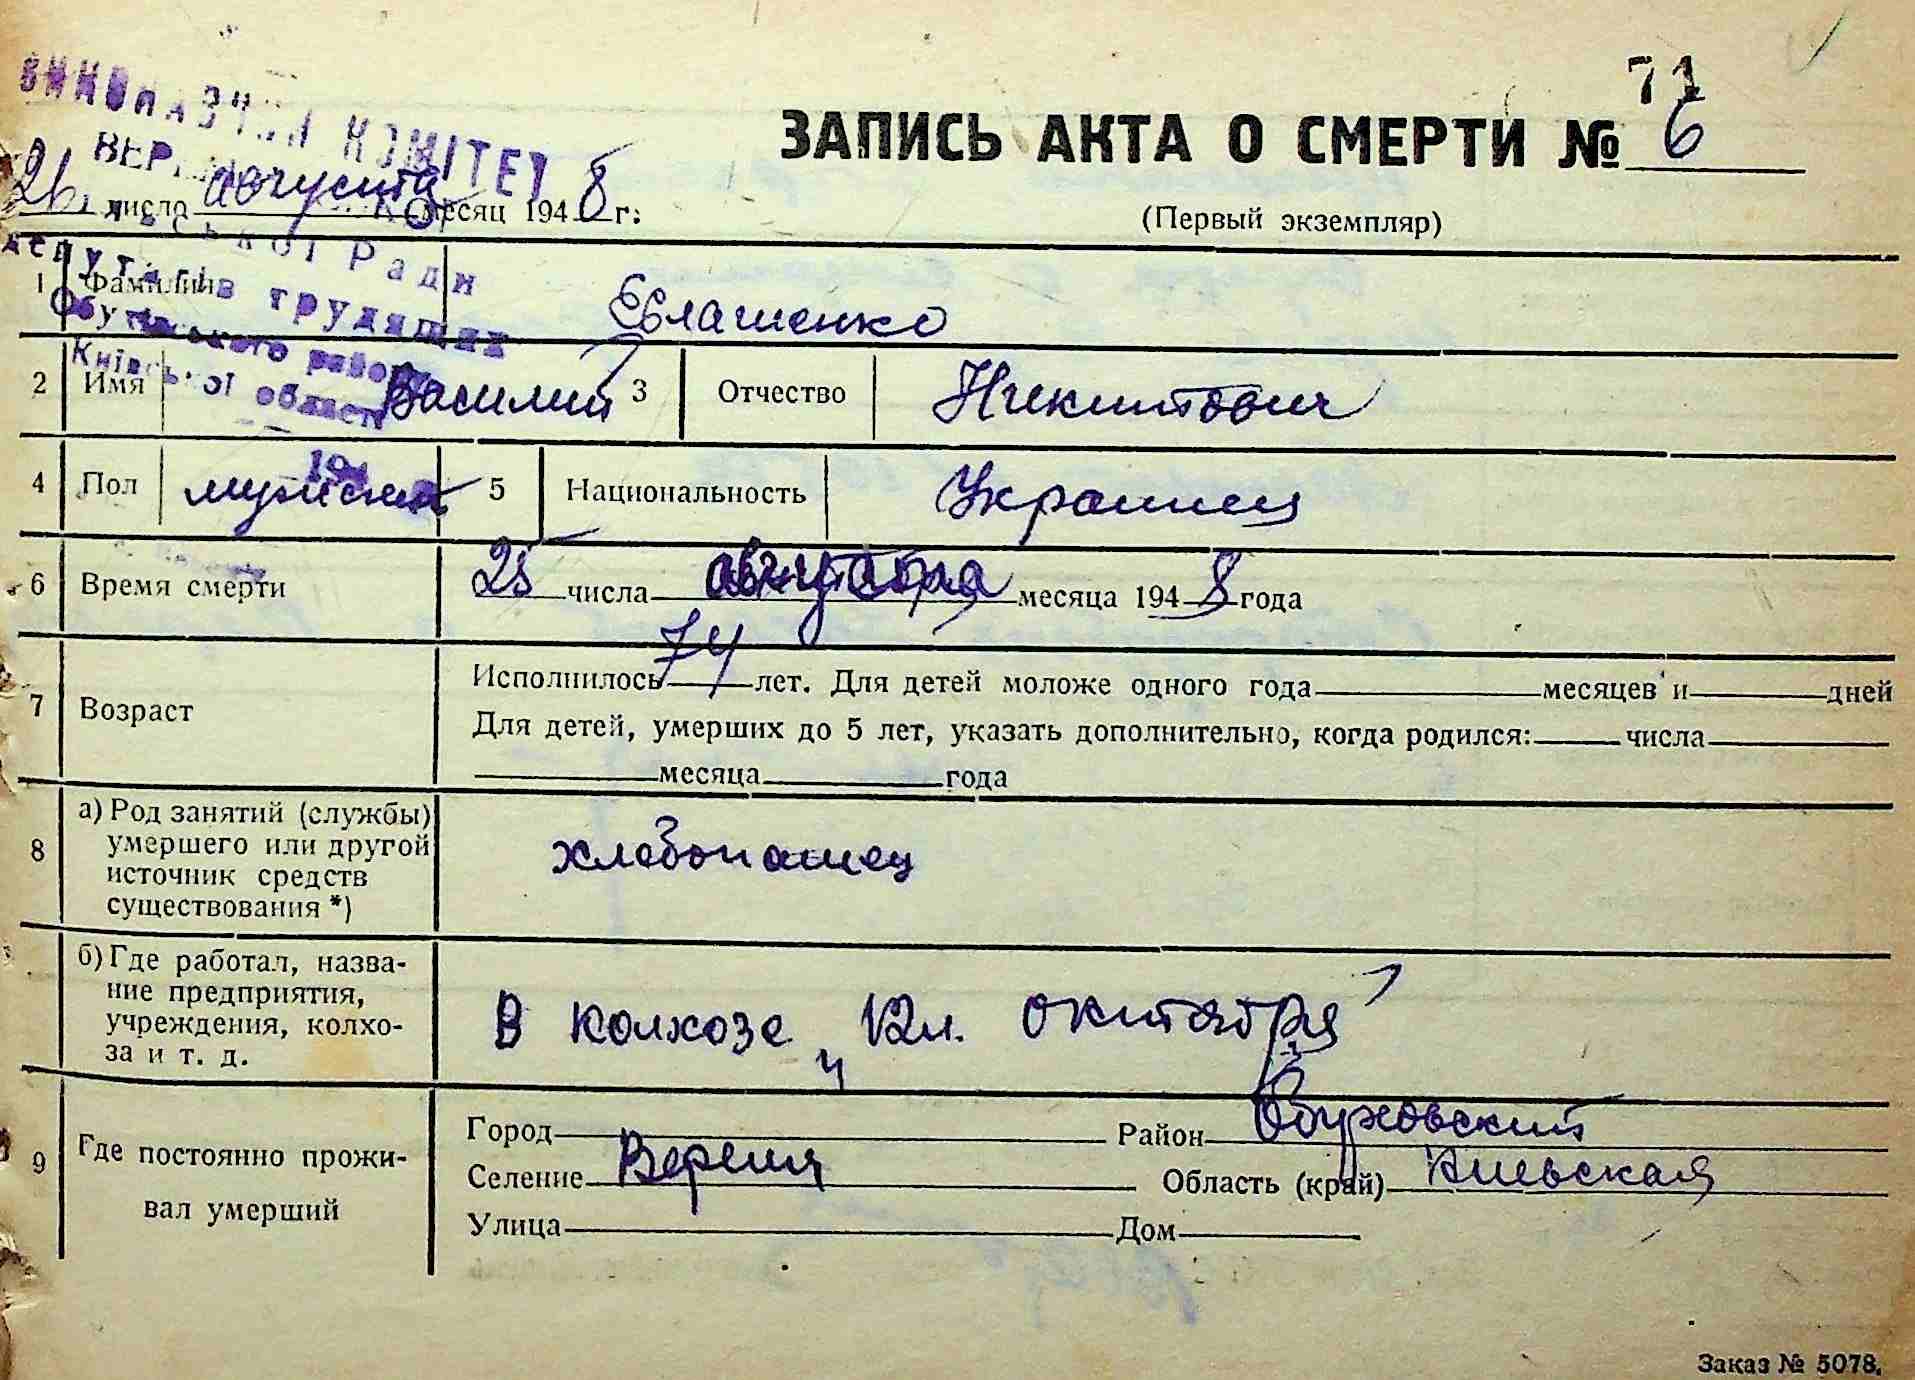 71
ЗАПИСЬ АКТА О СМЕРТИ № 6
(Первый экземпляр)
ВИКОНАВЧИЙ КОМІТЕТ
26 числа августа месяц 1948 г.
Ради
депутатів трудящих
Обухівського району
Київської області
194
1 Фамилия Евлашенко
2 Имя Василий 3 Отчество Никитович
4 Пол мужской 5 Национальность Украинец
6 Время смерти 25 числа августа месяца 1948 года
7 Возраст Исполнилось 74 лет. Для детей моложе одного года месяцев и дней
Для детей, умерших до 5 лет, указать дополнительно, когда родился: числа
месяца года
8 а) Род занятий (службы) умершего или другой источник средств существования *) хлебопашец
б) Где работал, название предприятия, учреждения, колхоза и т. д. В колхозе „12л. октября”
9 Где постоянно проживал умерший
Город Район Обуховский
Селение Веремя Область (край) Киевская
Улица Дом
Заказ № 5078.